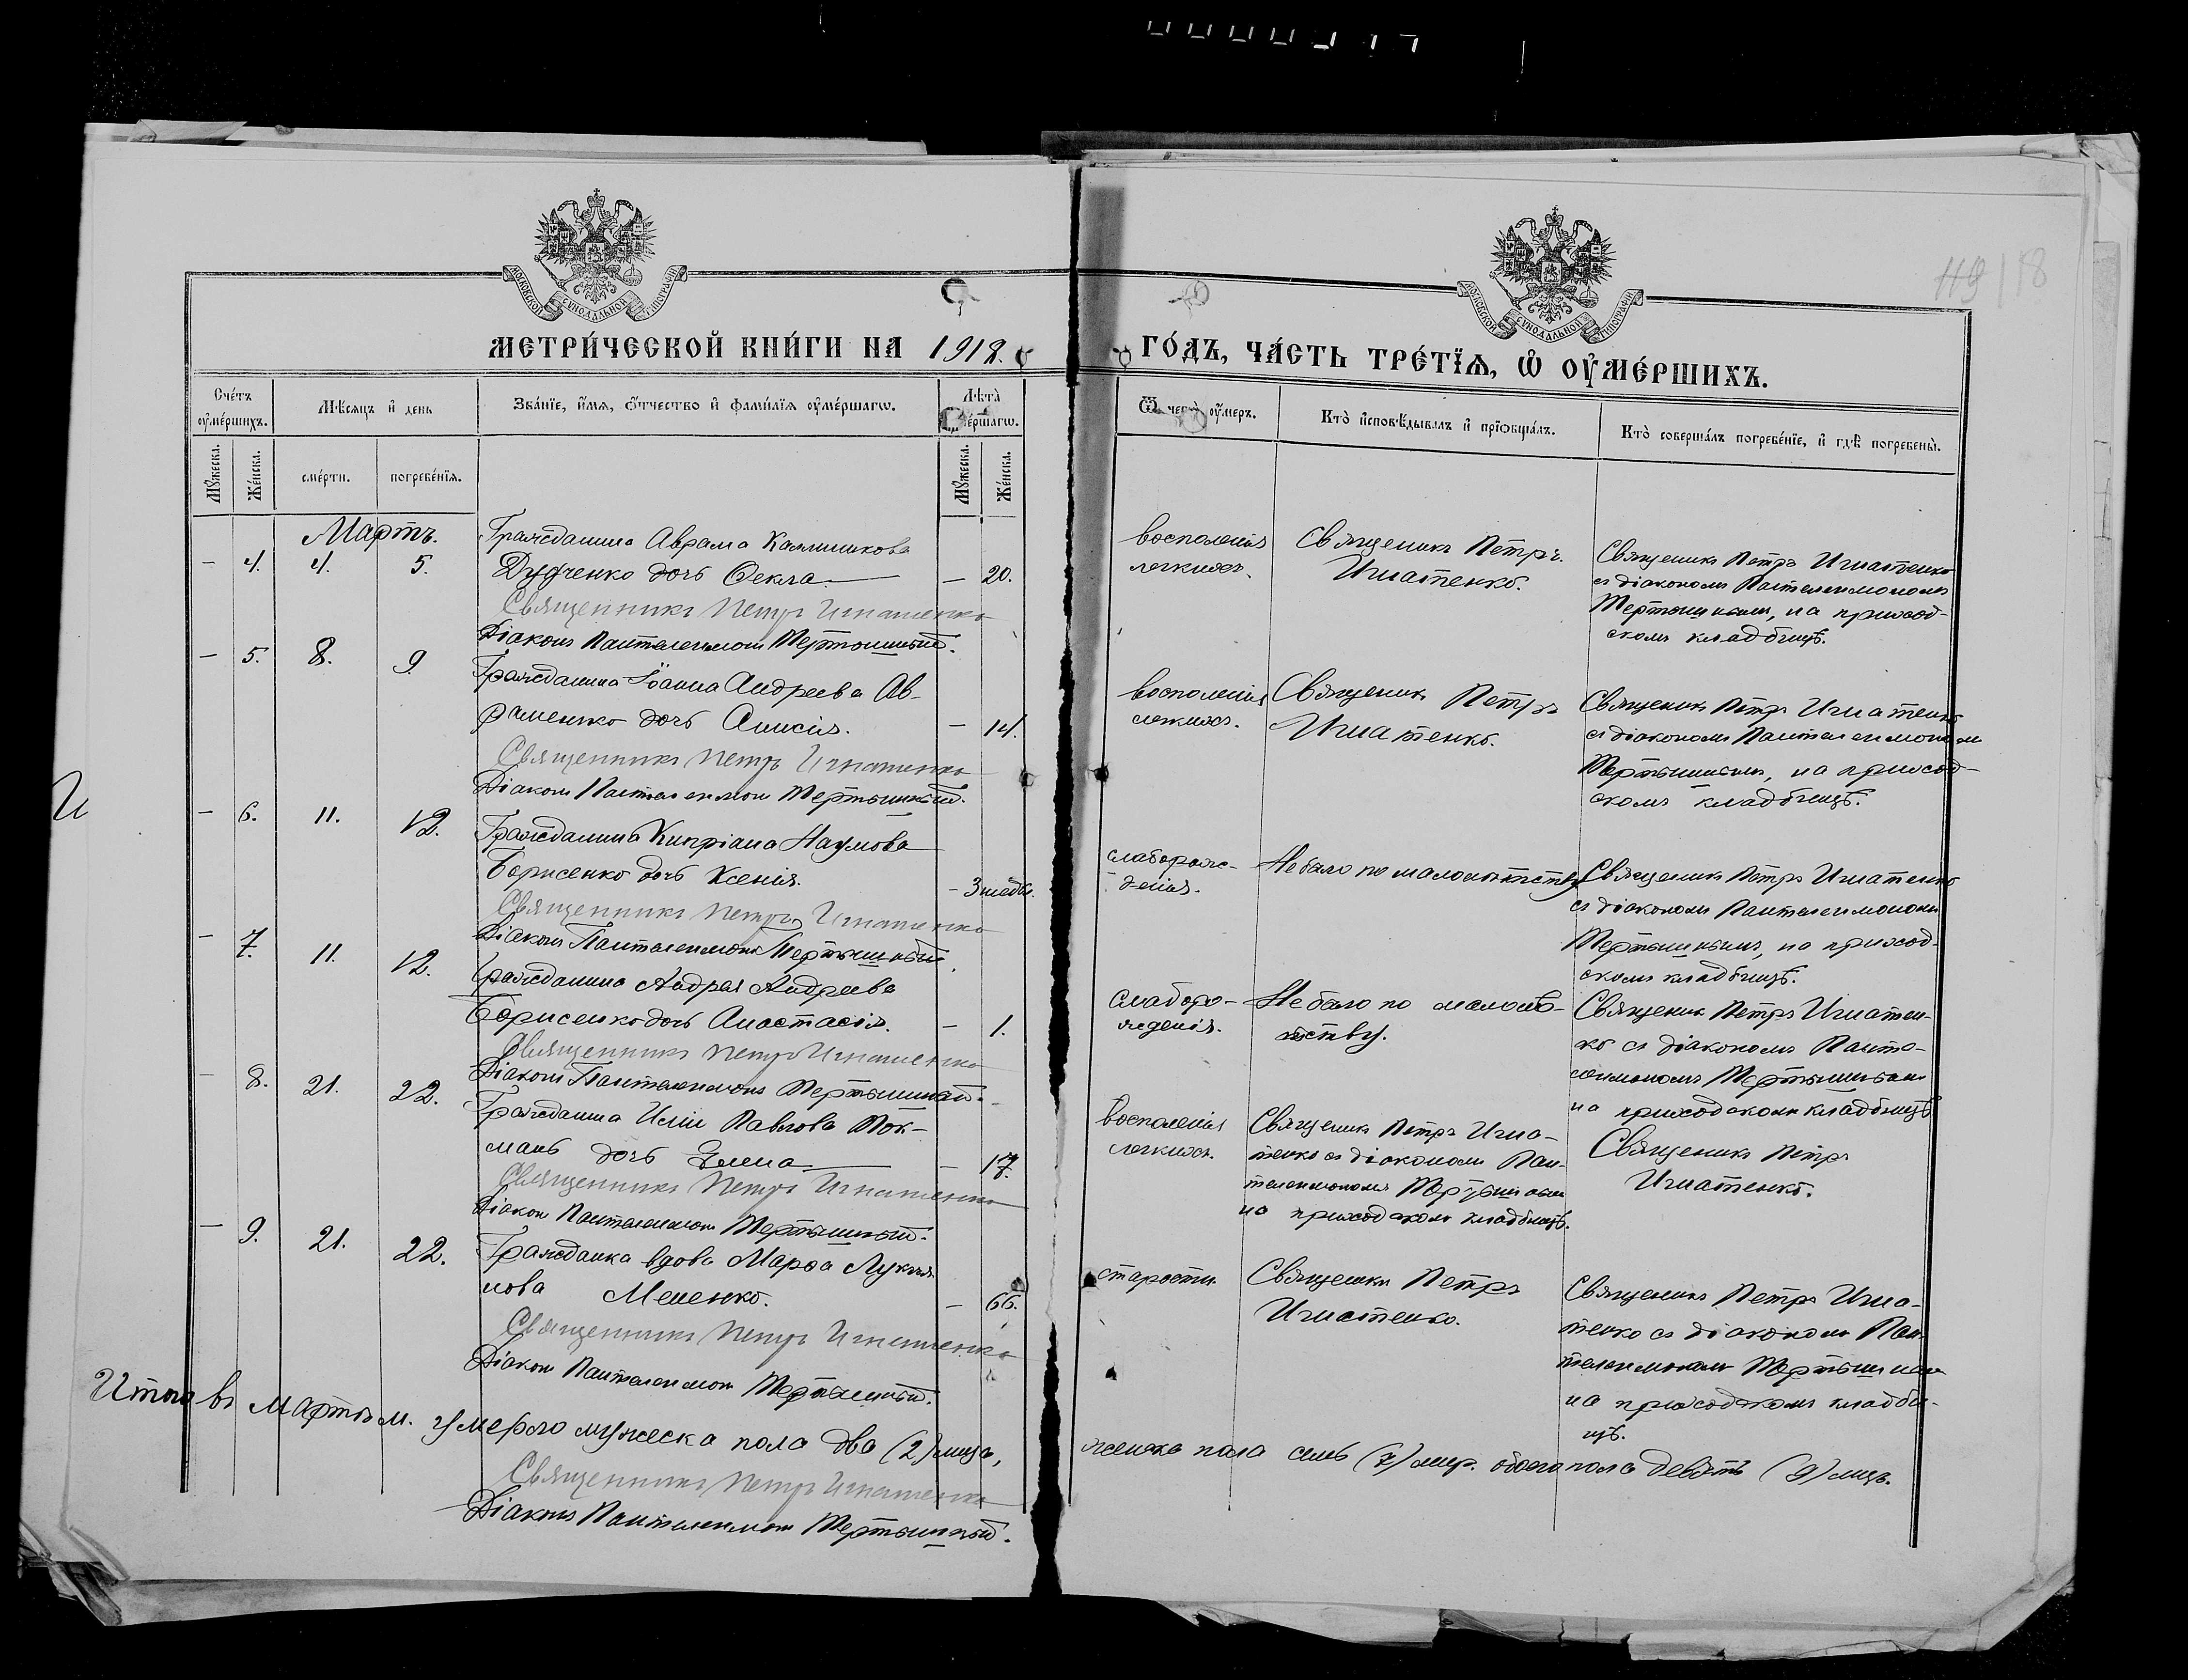 119 118
МОСКОВСКОЙ СѴНОДАЛЬНОЙ ТИПОГРАФІИ
МОСКОВСКОЙ СѴНОДАЛЬНОЙ ТИПОГРАФІИ
МЕТРИ́ЧЕСКОЙ КНИ́ГИ НА 1918.
ГО́ДЪ, ЧА́СТЬ ТРЕ́ТЇѦ, Ѽ ОУ҆МЕ́РШИХЪ.
Сче́тъ оумершихъ.
Мѣ́сяцъ и҆ день
Зва́нїе, и҆́мя, ѻ҆́тчество и҆ фами́лїя оу҆ме́ршагѡ.
Лѣта̀ оуме́ршагѡ.
Мꙋ́жеска. Же́нска. сме́рти. погребе́нїя. Мꙋ́жеска. Же́нска.
Ѿ чегѡ̀ оу҆́меръ.
Кто̀ и҆сповѣ́дывалъ и҆ прїѻбща́лъ.
Кто̀ соверша́лъ погребе́нїе, и҆ гдѣ̀ погребены̀.
Мартъ.
Гражданина Аврама Калиникова
- 4. 4. 5. Дудченко дочь Ѳекла — - 20.
Священникъ Петръ Игнатенко
Діаконъ Пантелеимонъ Мертвишный.
воспаленія
легкихъ.
Священикъ Петръ.
Игнатенко.
Священикъ Петръ Игнатенко
съ діакономъ Пантелеимономъ
Мертвишнымъ, на приход-
скомъ кладбищѣ.
- 5. 8. 9. Гражданина Іоанна Андреева Ав-
раменко дочь Анисія. - 14.
Священникъ Петръ Игнатенко
Діаконъ Пантелеимонъ Мертвишный.
воспаленія
легкихъ.
Священикъ Петръ
Игнатенко.
Священикъ Петръ Игнатенко
съ діакономъ Пантелеимономъ
Мертвишнымъ, на приход-
скомъ кладбищѣ.
И
- 6. 11. 12. Гражданина Кипріана Наумова
Борисенко дочь Ксенія. - 3 надѣл.
Священникъ Петръ Игнатенко
Діаконъ Пантелеимонъ Мертвишный.
слаборож-
денія.
Не было по малолѣтству
Священикъ Петръ Игнатенко
съ діакономъ Пантелеимономъ
Мертвишнымъ, на приход-
скомъ кладбищѣ.
- 7. 11. 12. Гражданина Андрея Андреева
Борисенко дочь Анастасія. - 1.
Священникъ Петръ Игнатенко
Діаконъ Пантелеимонъ Мертвишный.
слаборо-
жденія.
Не было по малолѣ-
тству.
Священикъ Петръ Игнатен-
ко съ діакономъ Панте-
леимономъ Мертвишнымъ
на приходскомъ кладбищѣ
- 8. 21. 22. Гражданина Иліи Павлова Пок-
мань дочь Елена — - 17.
Священникъ Петръ Игнатенко
Діаконъ Пантелеимонъ Мертвишный.
воспаленія
легкихъ.
Священикъ Петръ Игна-
тенко съ діакономъ Пан-
телеимономъ Мертвишнымъ
на приходскомъ кладбищѣ.
Священикъ Петръ
Игнатенко.
- 9. 21. 22. Гражданка вдова Марѳа Лукья-
нова Мененко. - 66.
Священникъ Петръ Игнатенко
Діаконъ Пантелеимонъ Мертвишный.
старости.
Священикъ Петръ
Игнатенко.
Священикъ Петръ Игна-
тенко съ діакономъ Пан-
телеимономъ Мертвишнымъ
на приходскомъ кладби-
щѣ.
Итого въ мартѣ м. умерло мужеска пола два (2) лица,
женска пола семь (7) лицъ. обоего пола девять (9) лицъ.
Священникъ Петръ Игнатенко
Діаконъ Пантелеимонъ Мертвишный.